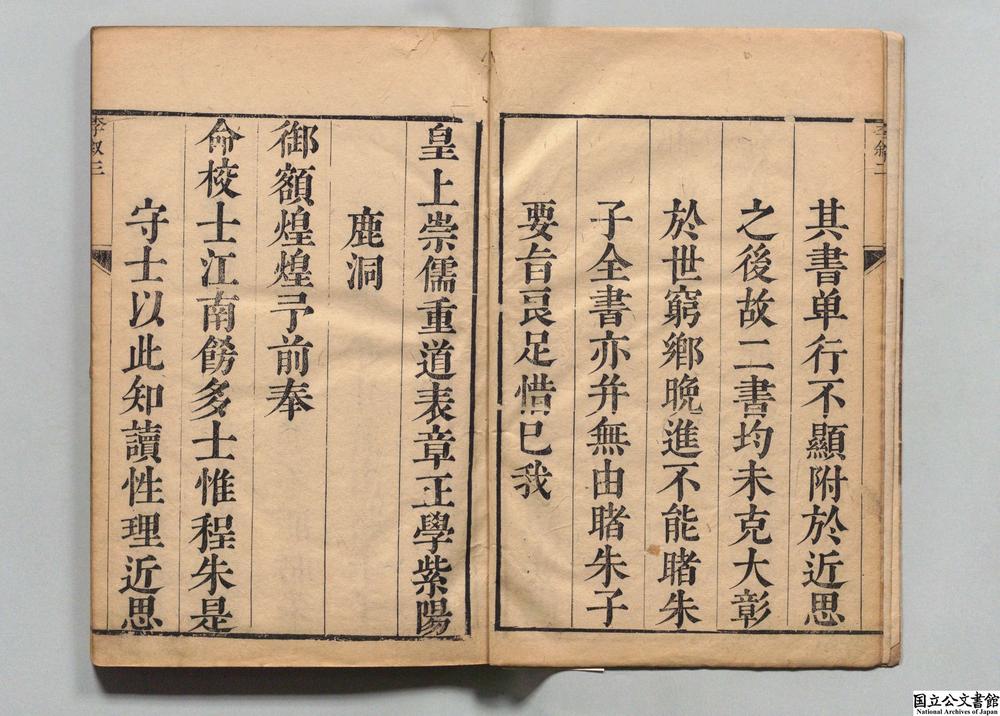 其書単行不顯附於近思
之後故二書均未克大彰
於世窮鄉晚進不能睹朱
子全書亦并無由睹朱子
要旨良足惜已我
皇上崇儒重道表章正學紫陽
鹿洞
御額煌煌予前奉
命校士江南餝多士惟程朱是
守士以此知讀性理近思
李叙三
国立公文書館
National Archives of Japan